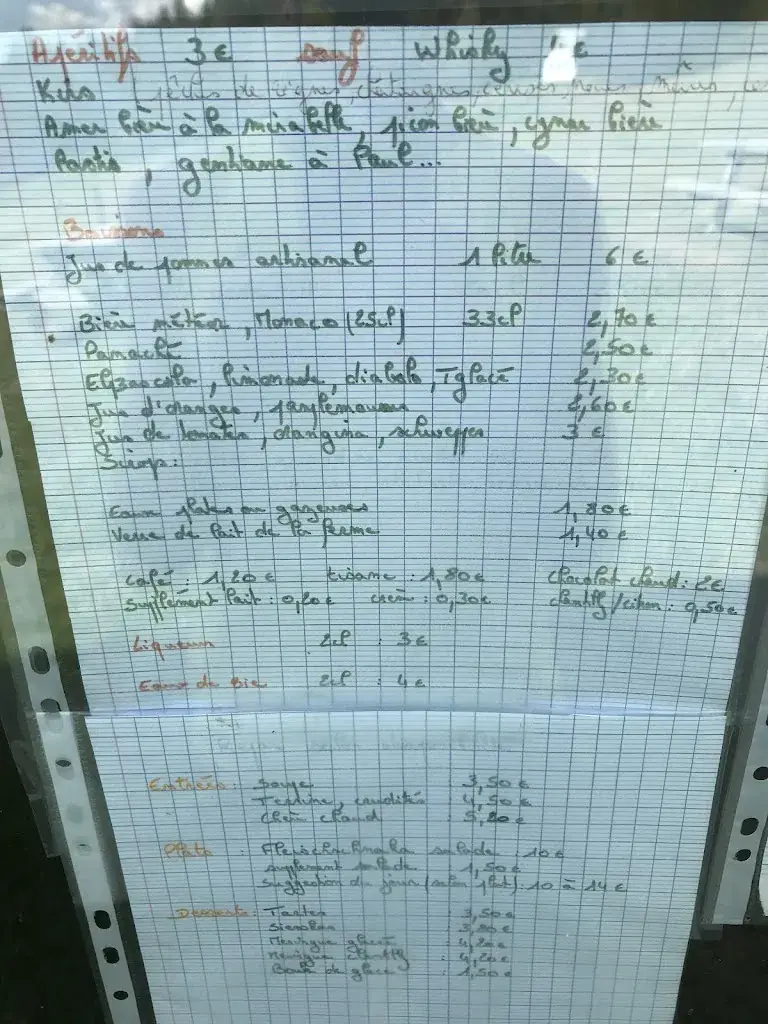 Apéritifs 3€ sauf Whisky €
Kirs pêche de vignes, châtaignes, cassis, mûres
Amer bière à la mirabelle, picon bière, cynar bière
Pastis, gentiane à Paul...
Boissons
Jus de pommes artisanal 1 litre 6€
Bière météor, Monaco (25cl) 33cl 2,70€
Panaché 2,50€
Elsasscola, limonade, diabolo, T glacé 2,30€
Jus d'oranges, pamplemousse 2,60€
Jus de tomates, orangina, schweppes 3€
Sirop:
Eaux plates ou gazeuses 1,80€
Verre de lait de la ferme 1,40€
Café : 1,20€ tisane : 1,80€ chocolat chaud : 2€
supplément lait : 0,20€ crème : 0,30€ chantilly/citron : 0,50€
Liqueurs 2cl : 3€
Eaux de Vie 2cl : 4€
Entrées : Soupe : 3,50€
Terrine, crudités : 4,50€
Chèvre chaud : 5,20€
Plats : Fleischschnaka salade : 10€
supplément salade : 1,50€
Suggestion du jour (selon plat) : 10 à 14€
Desserts : Tartes : 3,50€
Siesskas : 3,80€
Meringue glacée : 4,20€
Meringue chantilly : 4,20€
Boule de glace : 1,50€